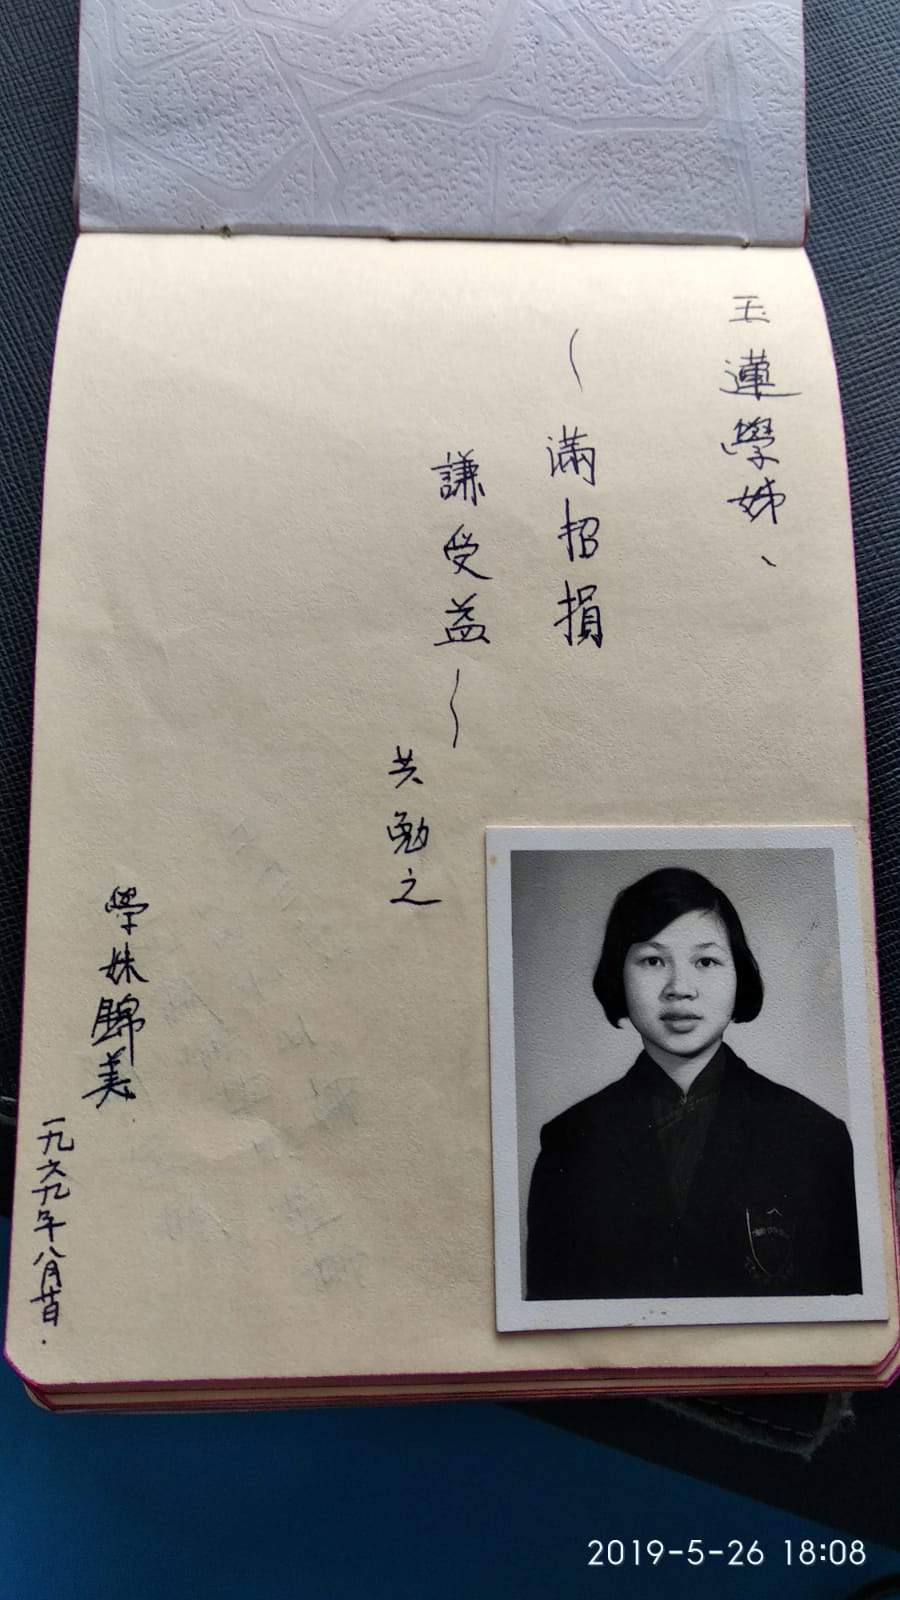 玉蓮學姊、
～滿招損
謙受益～
共勉之
學妹錦美
一九六九年八月廿日.
2019-5-26 18:08